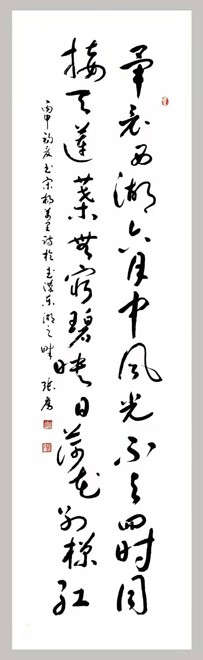 毕竟西湖六月中风光不与四时同
接天莲叶无穷碧映日荷花别样红
丙申初夏书宋杨万里诗于武汉东湖之畔